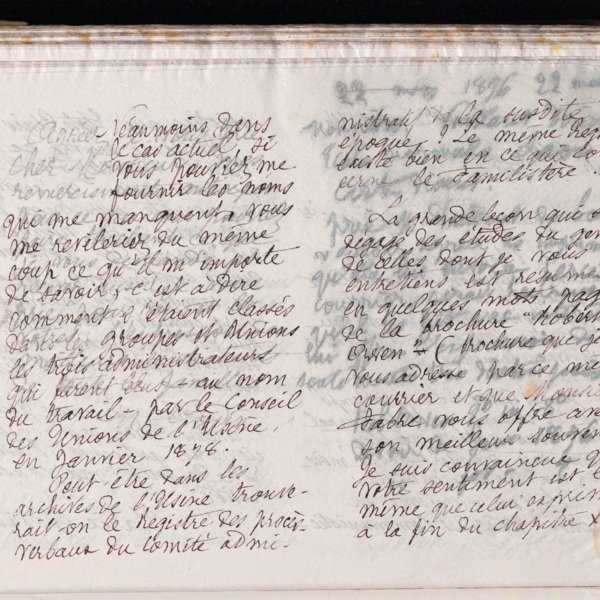 22 mars 1896
22 ma
Néanmoins dans
le cas actuel, si
vous pouviez me
fournir les noms
qui me manquent, vous
me révéleriez du même
coup ce qu'il m'importe
de savoir, c'est à dire
comment étaient classés
dans le groupes et Unions
les trois administrateurs
qui furent élus - au nom
du travail - par le Conseil
des Unions de l'Usine,
en Janvier 1878.
Peut-être dans les
archives de l'Usine trouve-
rait-on le registre des procès-
verbaux du Comité admi-
nistratif de la susdite
époque ? Le même reg
existe bien en ce qui co
cerne le Familistère.
La grande leçon qui
dégage des études du gen
de celles dont je vous
entretiens est résumée
en quelques mots pag
de la brochure "Robert
Owen" - (brochure que je
vous adresse par ce mê
courrier et que Monsie
Fabre vous offre av
son meilleur souven
Je suis convaincue q
votre sentiment est l
même que celui exprim
à la fin du chapitre X